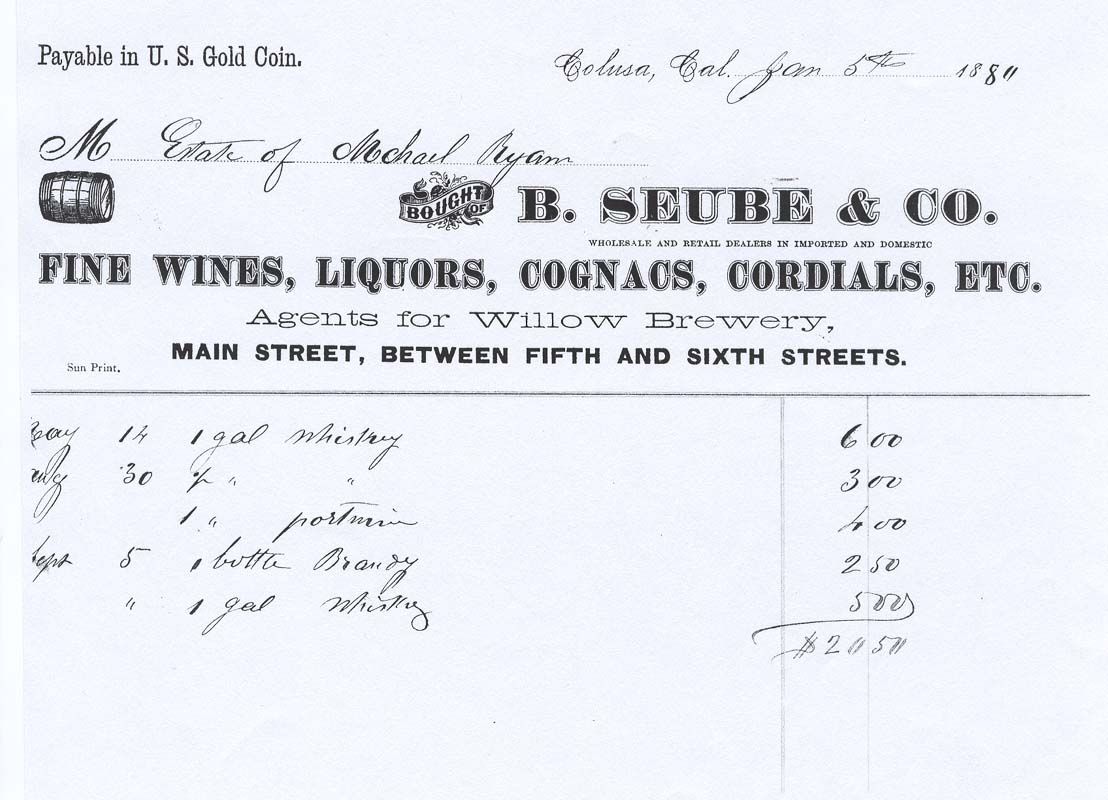 Payable in U. S. Gold Coin.
Colusa, Cal. Jan 5th 1880
M Estate of Michael Ryan
BOUGHT OF B. SEUBE & CO.
WHOLESALE AND RETAIL DEALERS IN IMPORTED AND DOMESTIC
FINE WINES, LIQUORS, COGNACS, CORDIALS, ETC.
Agents for Willow Brewery,
MAIN STREET, BETWEEN FIFTH AND SIXTH STREETS.
Sun Print.
14 1 gal Whiskey 6 00
30 " " 3 00
1 " portwine 4 00
Sept 5 1 bottle Brandy 2 50
" 1 gal Whiskey 5 00
$20 50